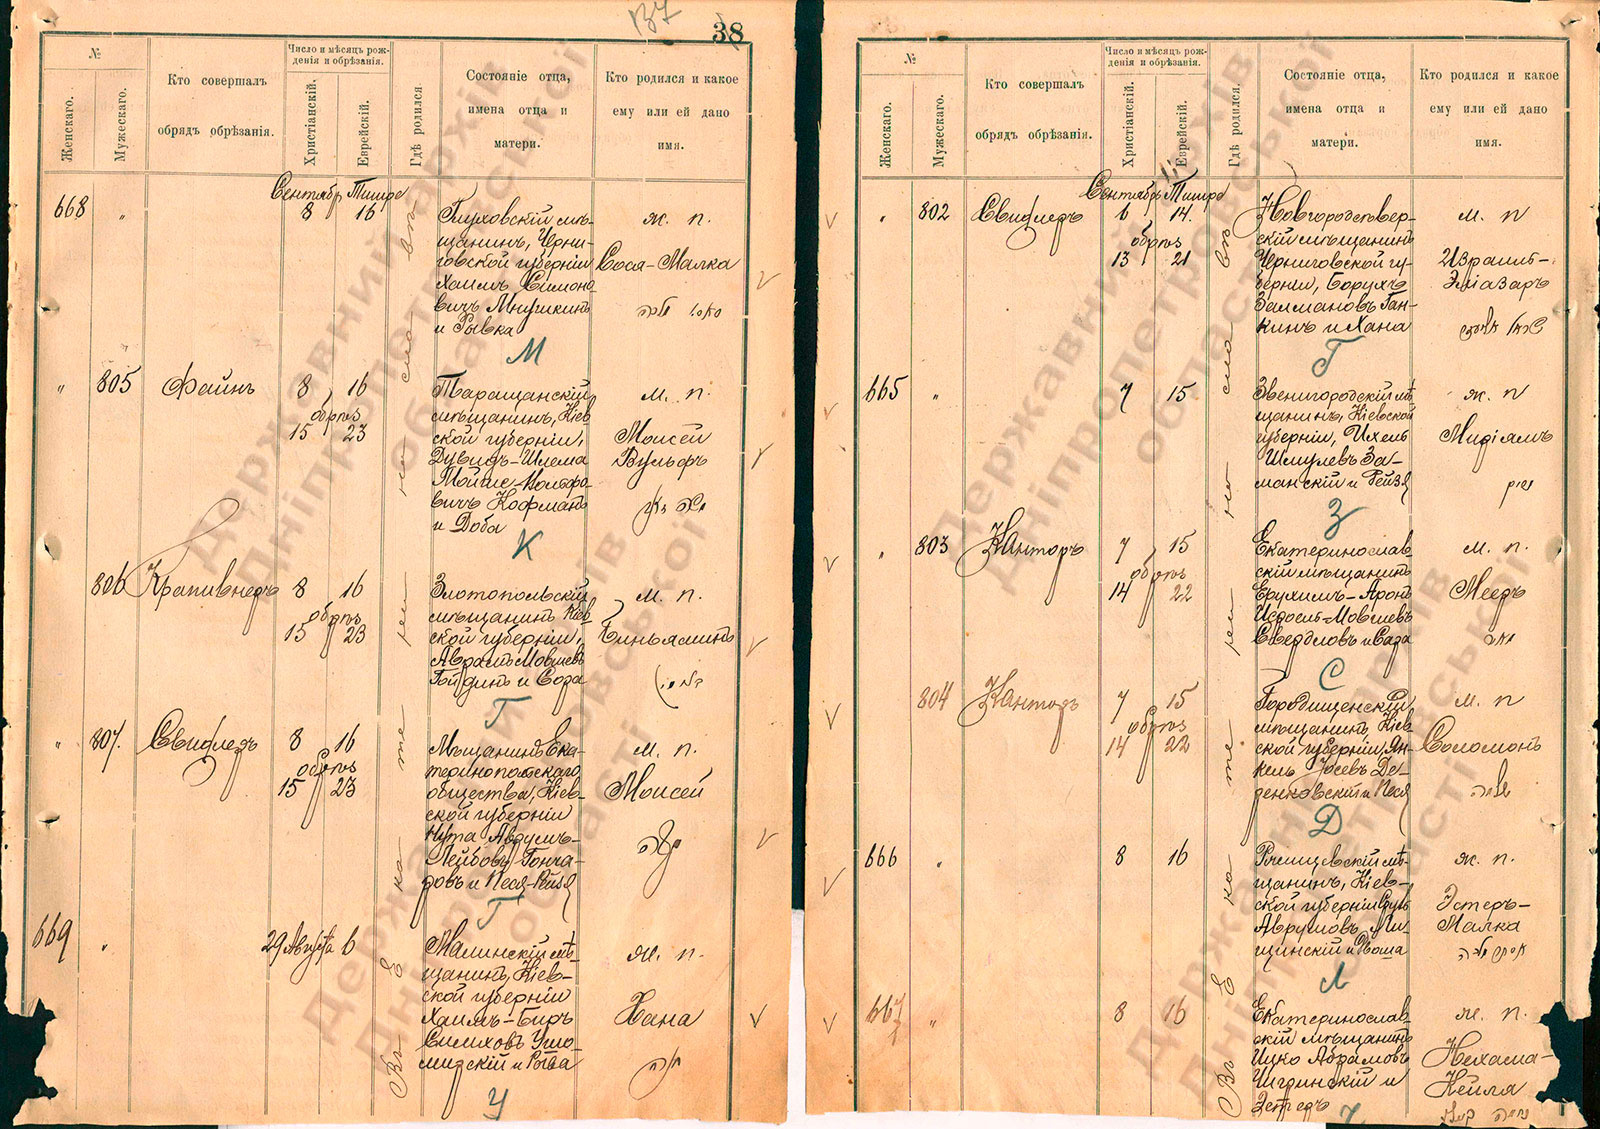 37
38
№
Женскаго.
Мужескаго.
Кто совершалъ
обрядъ обрѣзанія.
Число и мѣсяцъ рож-
денія и обрѣзанія.
Христіанскій.
Еврейскій.
Гдѣ родился.
Состояніе отца,
имена отца и
матери.
Кто родился и какое
ему или ей дано
имя.
Въ Екатеринославѣ
Сентябрь Тишре
668 " 8 16
Глуховскій мѣ-
щанинъ, Черни-
говской губерніи
Хаимъ Симоно-
вичъ Мнушкинъ
и Рывка
ж. п.
Сося-Малка
М
" 805 Файнъ 8 16
обрѣз
15 23
Таращанскій
мѣщанинъ, Кіев
ской губерніи,
Дувидъ-Шлема
вичъ Кофманъ
и Доба
м. п.
Моисей
Вульфъ
К
806 Крапивнеръ 8 16
обрѣз
15 23
Златопольскій
мѣщанинъ Кіев
ской губерніи,
Абрамъ Мовшевъ
и Сора
м. п.
Биньяминъ
Г
" 807. 8 16
обрѣз
15 23
Мѣщанинъ Ека-
теринопольскаго
общества, Кіев-
ской губерніи
Нута Авдумъ-
Лейбовъ Гонча-
ровъ и Песя-Рейзя
м. п.
Моисей
משה
Г
669 " 29 Августа 6
Малинскій мѣ-
щанинъ, Кіев-
ской губерніи
Хаимъ-Беръ
ж. п.
Хана
חנה
У
№
Женскаго.
Мужескаго.
Кто совершалъ
обрядъ обрѣзанія.
Число и мѣсяцъ рож-
денія и обрѣзанія.
Христіанскій.
Еврейскій.
Гдѣ родился.
Состояніе отца,
имена отца и
матери.
Кто родился и какое
ему или ей дано
имя.
Въ Екатеринославѣ
Сентябрь Тишре
" 802 6 14
обрѣз
13 21
Новгородсѣвер-
скій мѣщанинъ
Черниговской гу-
берніи, Борухъ
Залмановъ Ган-
кинъ и Хана
м. п
Израиль-
Эліазаръ
Г
665 " 7 15
Звенигородскій мѣ
щанинъ, Кіевской
губерніи, Ихель
Шмулевъ За-
манскій и Рейзя
ж. п
Миріямъ
מרים
З
" 803 Канторъ 7 15
обрѣз
14 22
Екатеринослав-
скій мѣщанинъ
Ерухимъ-Аронъ
Свердловъ и Сара
м. п.
Мееръ
С
804 Канторъ 7 15
обрѣз
14 22
Городищенскій
мѣщанинъ, Кіев-
ской губерніи, Ян-
кель Іосевъ Де-
денковскій и Песя
м. п
Соломонъ
שלמה
Д
666 " 8 16
Ржищевскій мѣ-
щанинъ, Кіев-
ской губерніи Сруль
Аврумовъ Ли-
щинскій и Двоша
ж. п.
Эстеръ-
Малка
אסתר מלכה
Л
667 " 8 16
Екатеринослав-
скій мѣщанинъ
Ицко Абрамовъ
Шигринскій и
ж. п.
Нехама-
Кейла
נחמה קיילא
Державний архів
Дніпропетровської
області